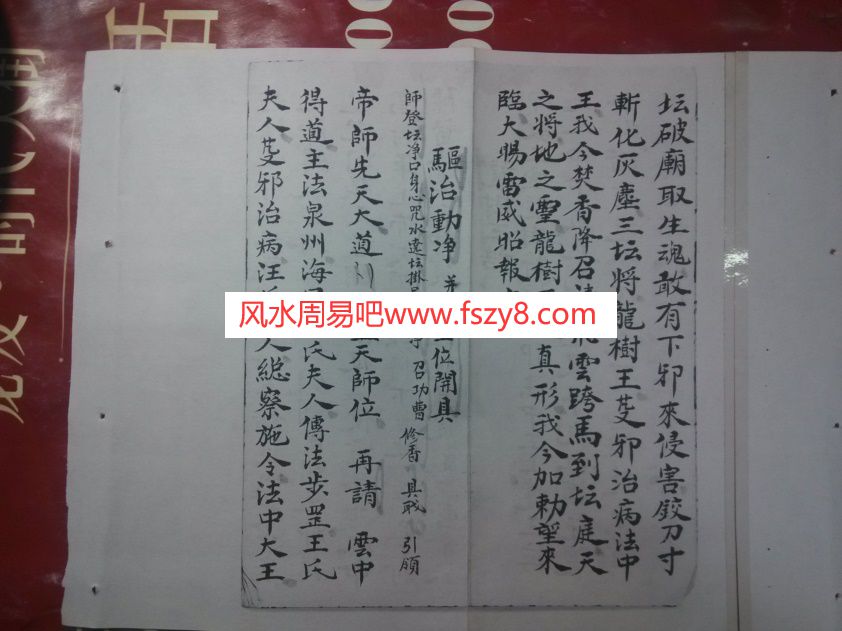 坛破廟取生魂敢有下邪來侵害鉸刀寸
斬化灰塵三坛將龍樹王邪治病法中
王我今焚香降召雲跨馬到坛庭天
之將地之靈龍樹真形我今加勅望來
臨大賜雷威昭報
驅治動净 位開具
師登坛净口身心咒水遶坛掛 召功曹 修香 具職 引頒
帝師先天大道 天師位 再請 雲中
得道主法泉州海氏夫人傳法步罡王氏
夫人邪治病汪人總察施令法中大王
风水周易吧www.fszy8.com